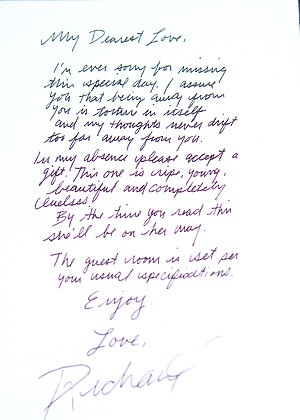 My Dearest Love,
I'm ever sorry for missing
this special day. I assure
you that being away from
you is torture in itself
and my thoughts never drift
too far away from you.
In my absence please accept a
gift. This one is ripe, young,
beautiful and completely
clueless.
By the time you read this
she'll be on her way.
The guest room is set per
your usual specifications.
Enjoy
Love,
Richard